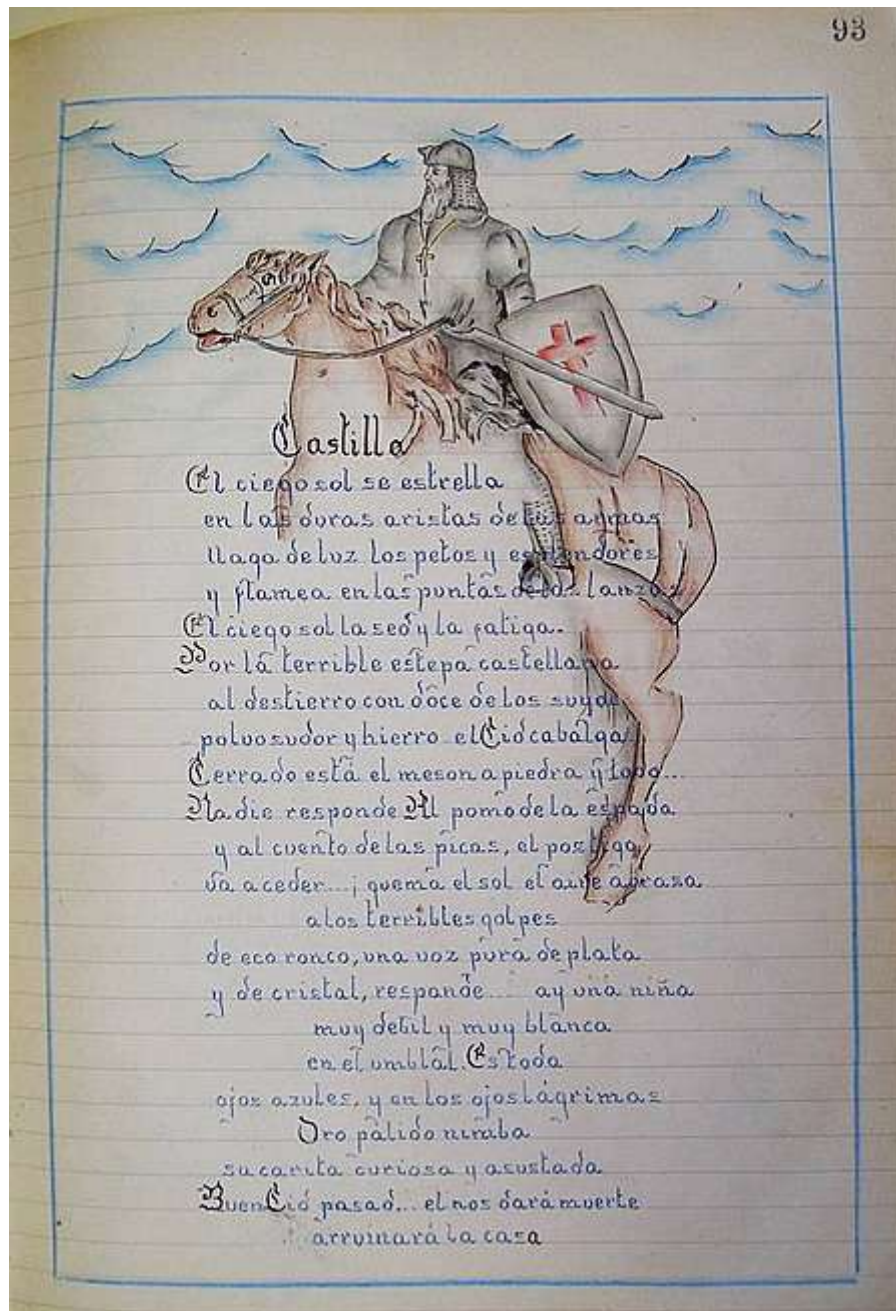 93
Castilla
El ciego sol se estrella
en las duras aristas de las armas
llaga de luz los petos y espaldores
y flamea en las puntas de las lanzas
El ciego sol la sed y la fatiga.
Por la terrible estepa castellana
al destierro con doce de los suyos
polvo sudor y hierro el Cid cabalga
Cerrado está el meson a piedra y lodo...
Nadie responde Al pomo de la espada
y al cuento de las picas, el postigo
va a ceder...¡ quema el sol el aire abrasa
a los terribles golpes
de eco ronco, una voz pura de plata
y de cristal, responde.... ay una niña
muy debil y muy blanca
en el umblal. Es toda
ojos azules, y en los ojos lágrimas
Oro pálido nimba
su carita curiosa y asustada
Buen Cid pasad... el nos dará muerte
arruinará la casa